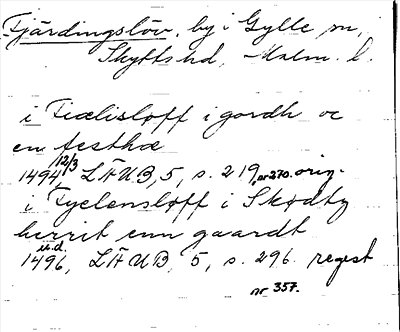 Fjärdingslöv, by i Gylle sn,
Skytts hd, Malm. l.
i Fiælisløff i gordh oc
en festhæ
1494 12/3 LÄUB, 5, s. 219, nr 270. orig.
i Fyelensløff i Skødtz
herrit enn gaardt
1496, u.d. LÄUB, 5, s. 296. regest
nr 357.